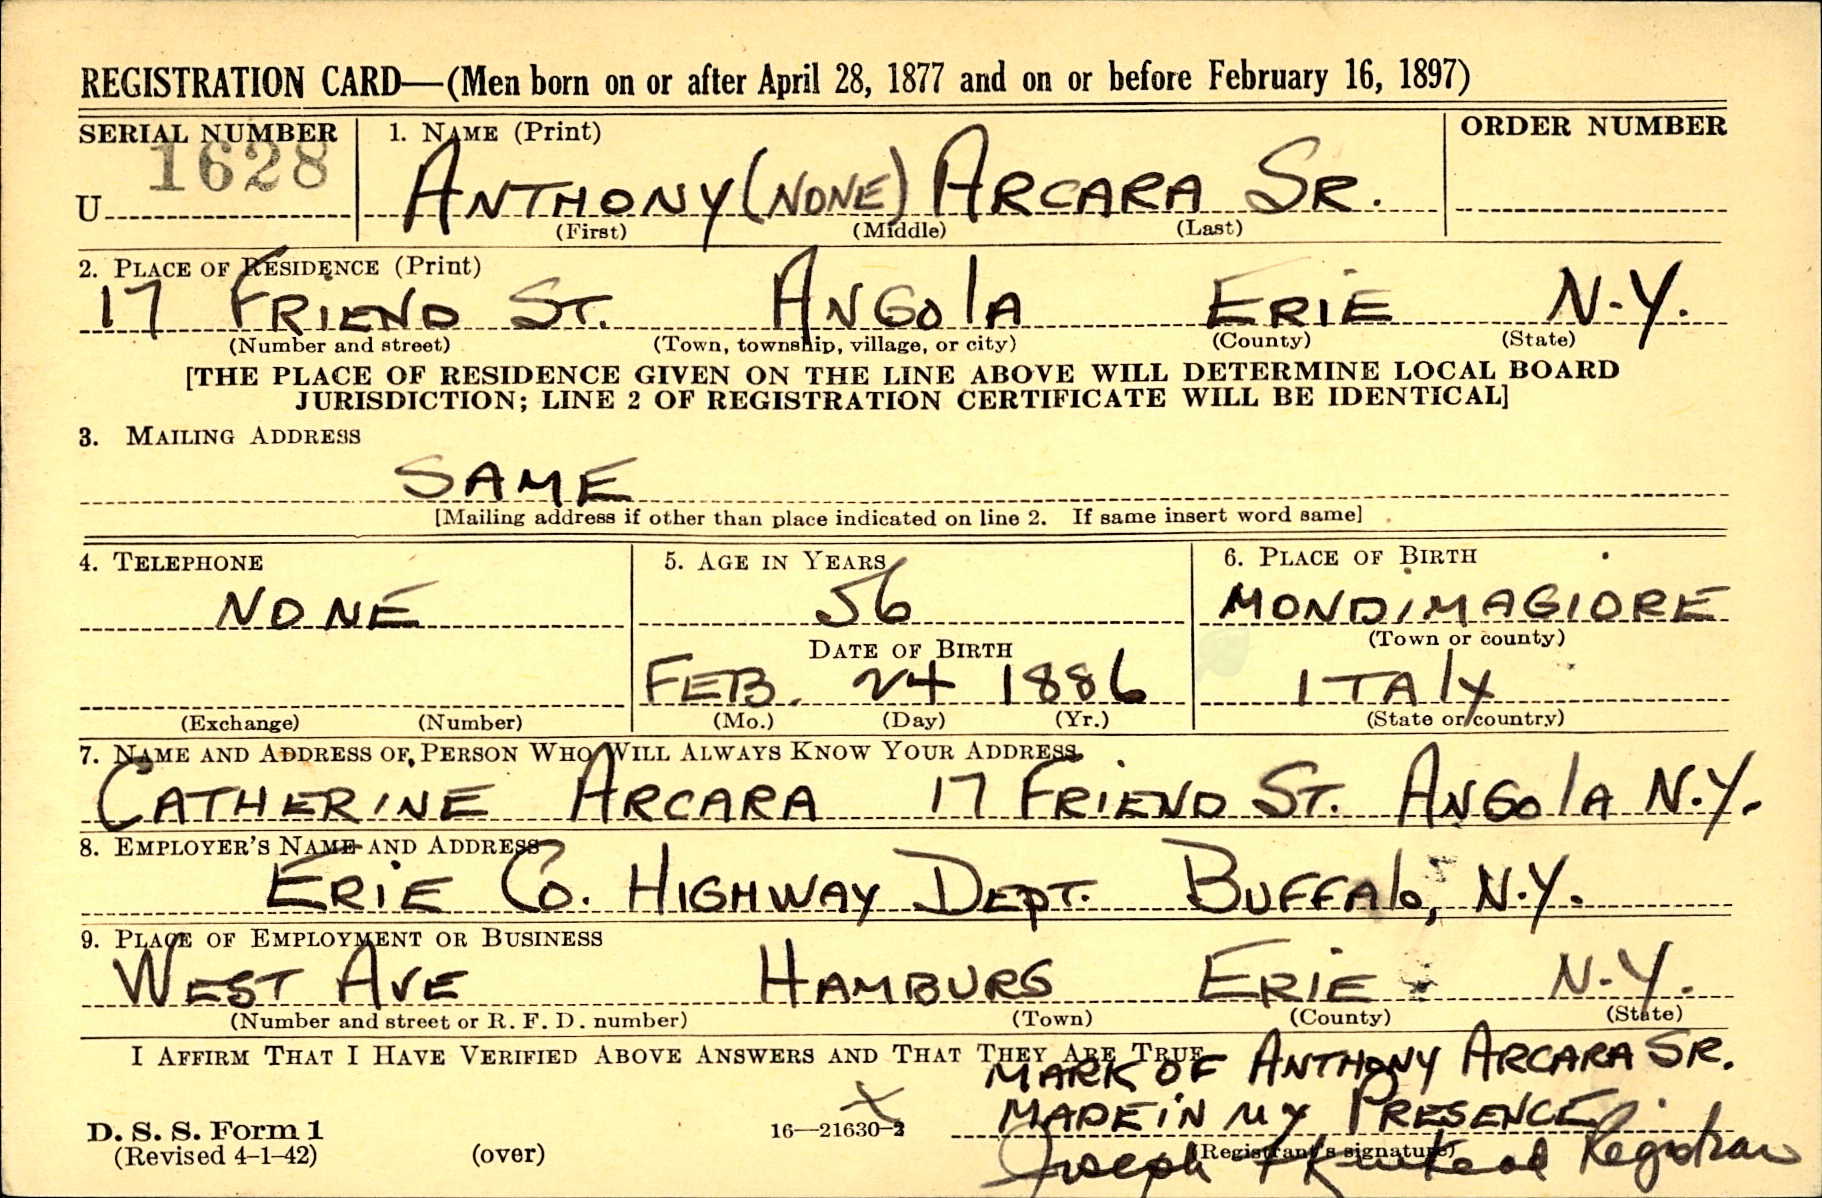 REGISTRATION CARD—(Men born on or after April 28, 1877 and on or before February 16, 1897)
SERIAL NUMBER
1. NAME (Print)
ORDER NUMBER
1628
U
ANTHONY (NONE) ARCARA SR.
(First) (Middle) (Last)
2. PLACE OF RESIDENCE (Print)
17 FRIEND ST. ANGOLA ERIE N.Y.
(Number and street) (Town, township, village, or city) (County) (State)
[THE PLACE OF RESIDENCE GIVEN ON THE LINE ABOVE WILL DETERMINE LOCAL BOARD
JURISDICTION; LINE 2 OF REGISTRATION CERTIFICATE WILL BE IDENTICAL]
3. MAILING ADDRESS
SAME
[Mailing address if other than place indicated on line 2. If same insert word same]
4. TELEPHONE
NONE
(Exchange) (Number)
5. AGE IN YEARS
56
DATE OF BIRTH
FEB. 24 1886
(Mo.) (Day) (Yr.)
6. PLACE OF BIRTH
MONDIMAGIORE
(Town or county)
ITALY
(State or country)
7. NAME AND ADDRESS OF PERSON WHO WILL ALWAYS KNOW YOUR ADDRESS
CATHERINE ARCARA 17 FRIEND ST. ANGOLA N.Y.
8. EMPLOYER'S NAME AND ADDRESS
ERIE CO. HIGHWAY DEPT. BUFFALO, N.Y.
9. PLACE OF EMPLOYMENT OR BUSINESS
WEST AVE HAMBURG ERIE N.Y.
(Number and street or R. F. D. number) (Town) (County) (State)
I AFFIRM THAT I HAVE VERIFIED ABOVE ANSWERS AND THAT THEY ARE TRUE
MARK OF ANTHONY ARCARA SR.
X
MADE IN MY PRESENCE
D. S. S. Form 1
(Revised 4-1-42)
(over)
16—21630-2
(Registrant's signature)
Joseph Registrar